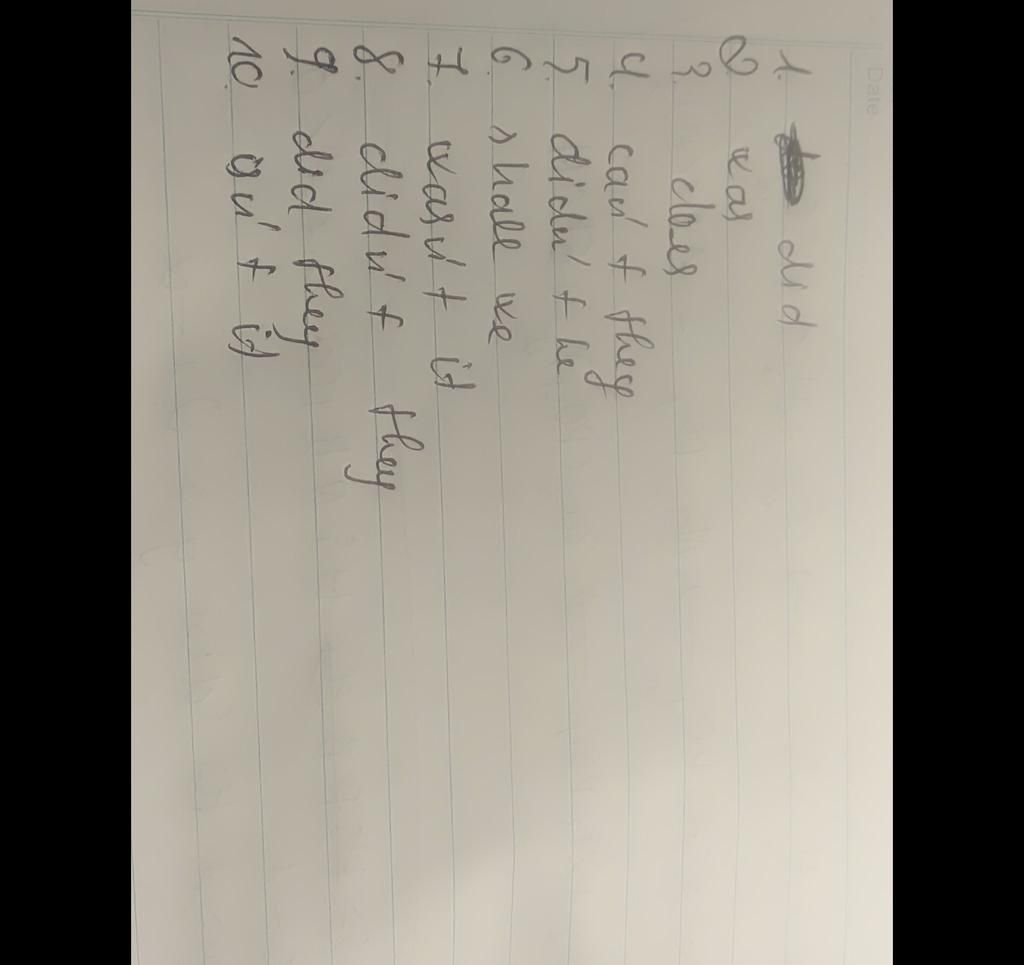 Date
1. did
2 was
3. does
4. can't they
5. didn't he
6. shall we
7. wasn't it
8. didn't they
9. did they
10. isn't it